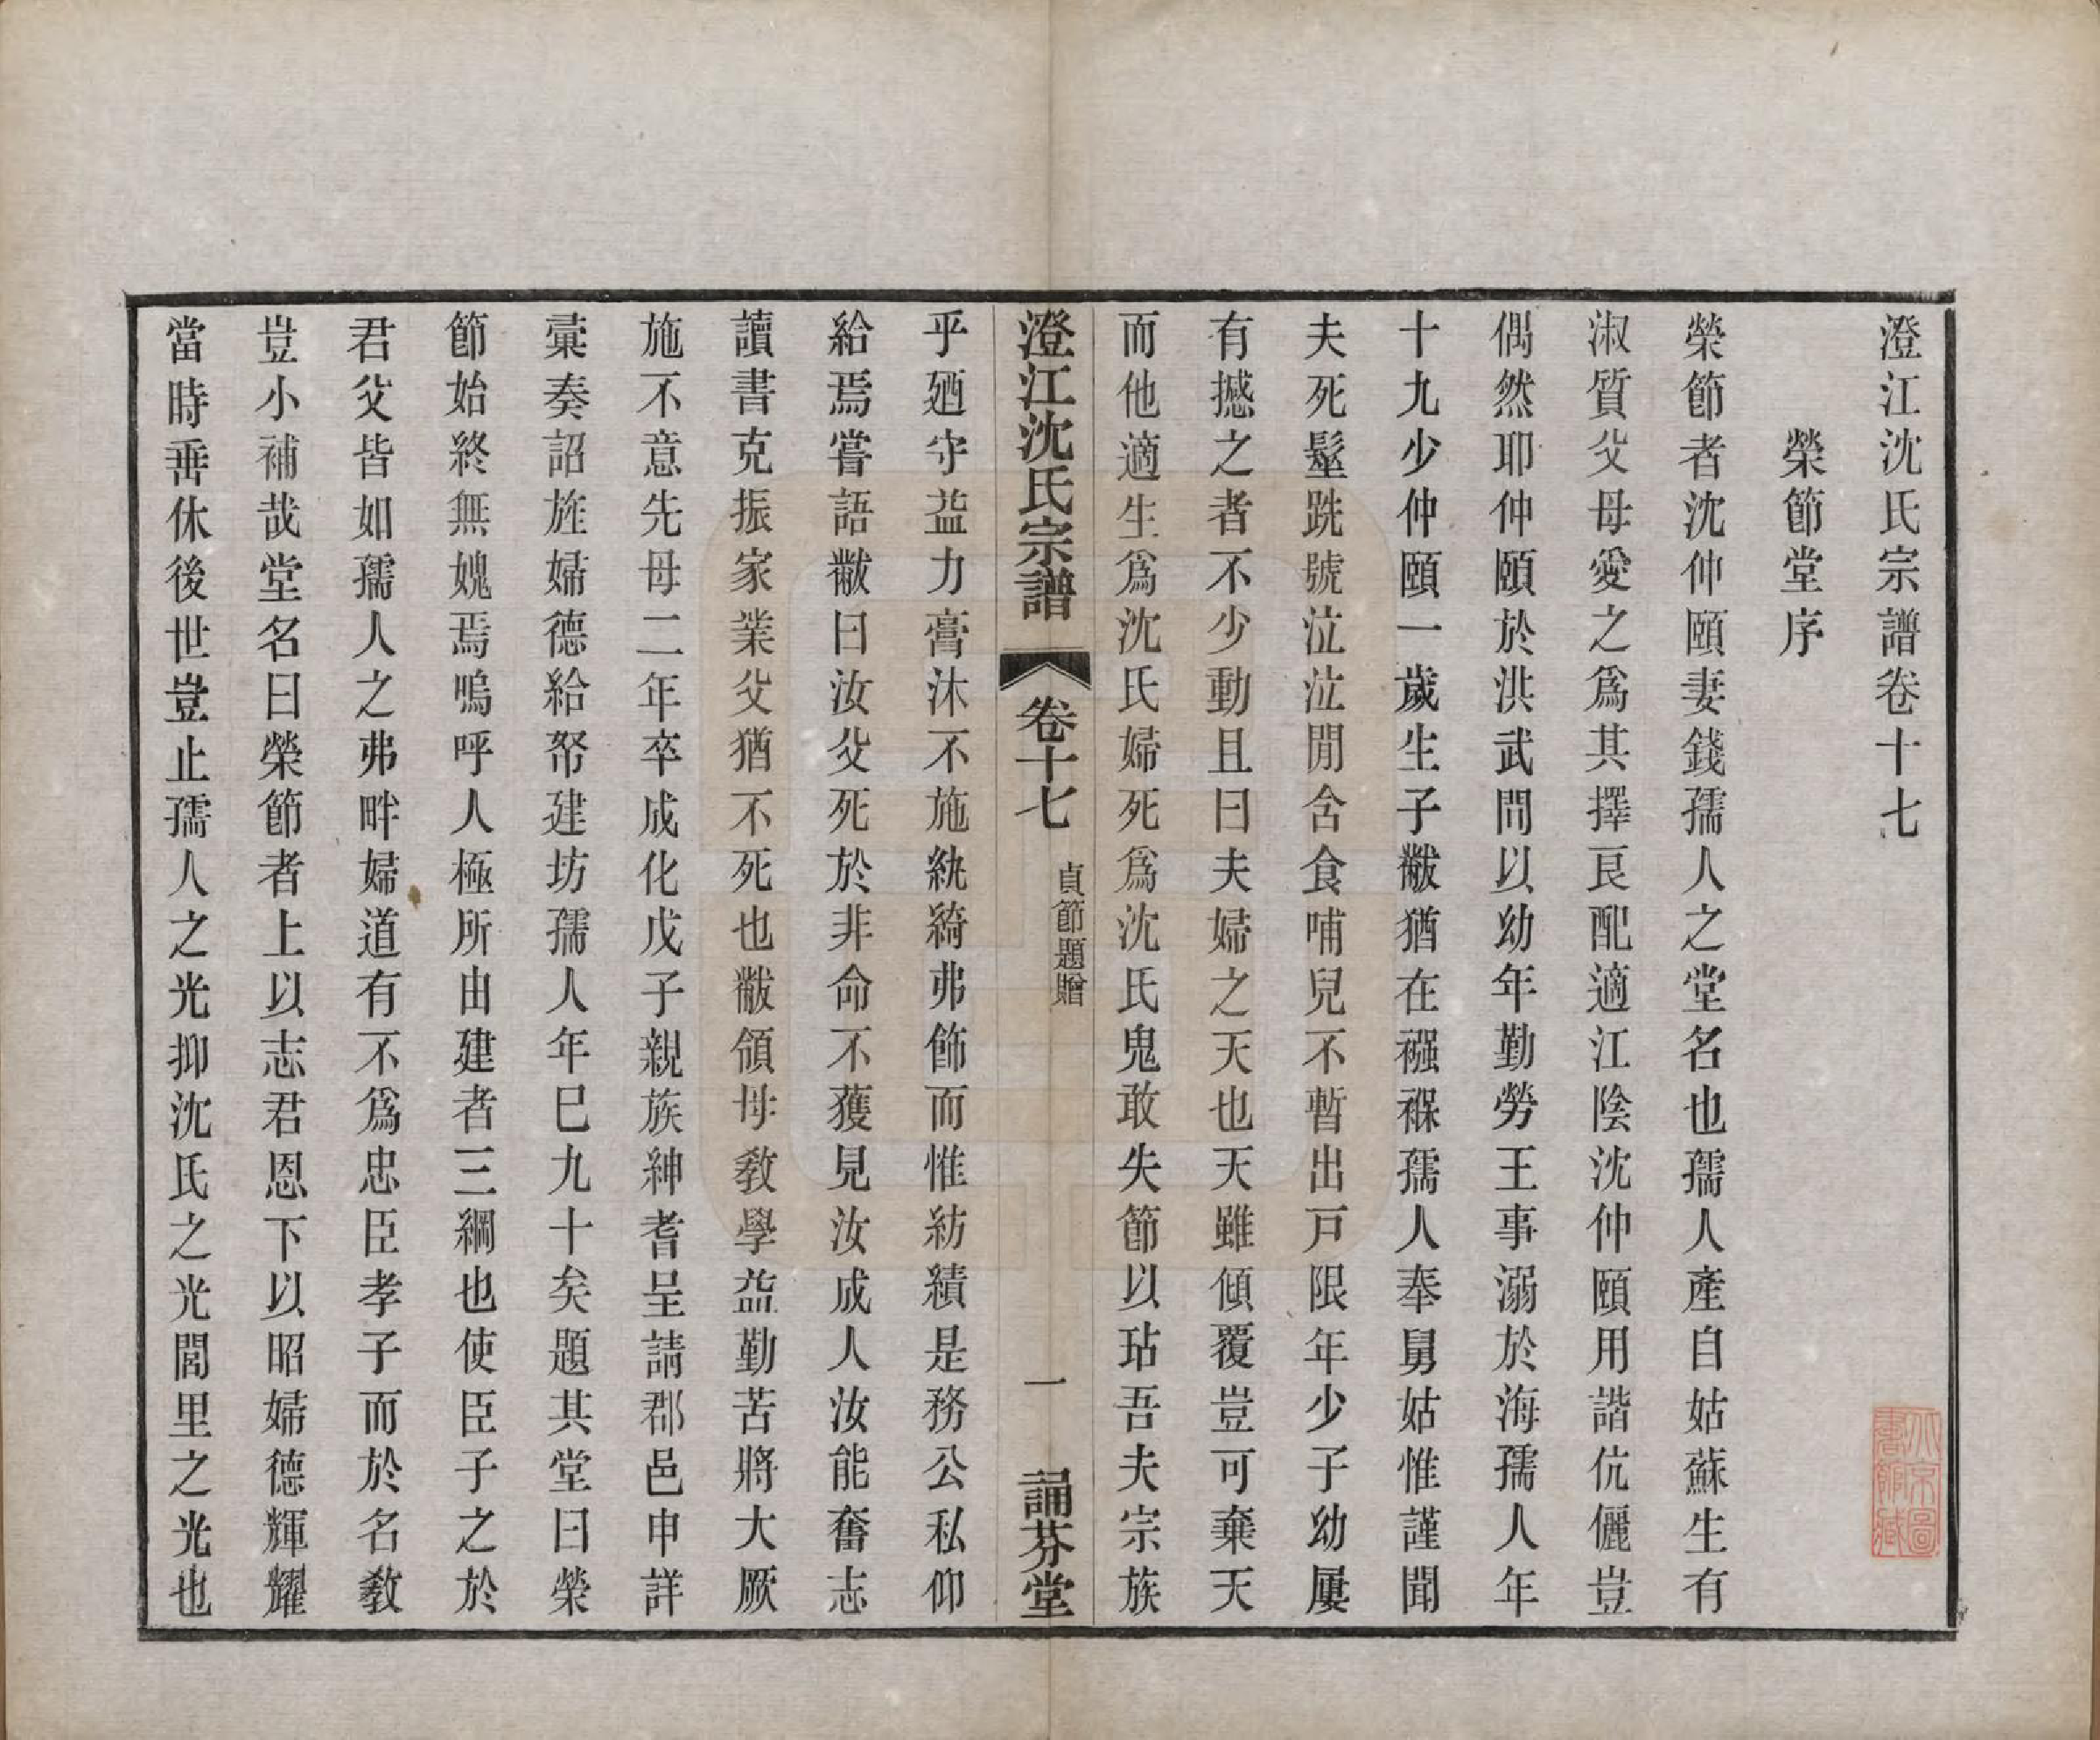 澄江沈氏宗譜卷十七
榮節堂序
榮節者沈仲頤妻錢孺人之堂名也孺人產自姑蘇生有
淑質父母愛之爲其擇良配適江陰沈仲頤用諧伉儷豈
偶然耶仲頤於洪武間以幼年勤勞王事溺於海孺人年
十九少仲頤一歲生子黻猶在襁褓孺人奉舅姑惟謹聞
夫死髽跣號泣泣間含食哺兒不暫出戸限年少子幼屢
有撼之者不少動且曰夫婦之天也天雖傾覆豈可棄天
而他適生爲沈氏婦死爲沈氏鬼敢失節以玷吾夫宗族
澄江沈氏宗譜 卷十七 貞節題贈 一 誦芬堂
乎廼守益力膏沐不施紈綺弗飾而惟紡績是務公私仰
給焉嘗語黻曰汝父死於非命不獲見汝成人汝能奮志
讀書克振家業父猶不死也黻領母教學益勤苦將大厥
施不意先母二年卒成化戊子親族紳耆呈請郡邑申詳
彙奏詔旌婦德給帑建坊孺人年已九十矣題其堂曰榮
節始終無媿焉嗚呼人極所由建者三綱也使臣子之於
君父皆如孺人之弗畔婦道有不爲忠臣孝子而於名教
豈小補哉堂名曰榮節者上以志君恩下以昭婦德輝耀
當時垂休後世豈止孺人之光抑沈氏之光閭里之光也
大京圖
書館藏